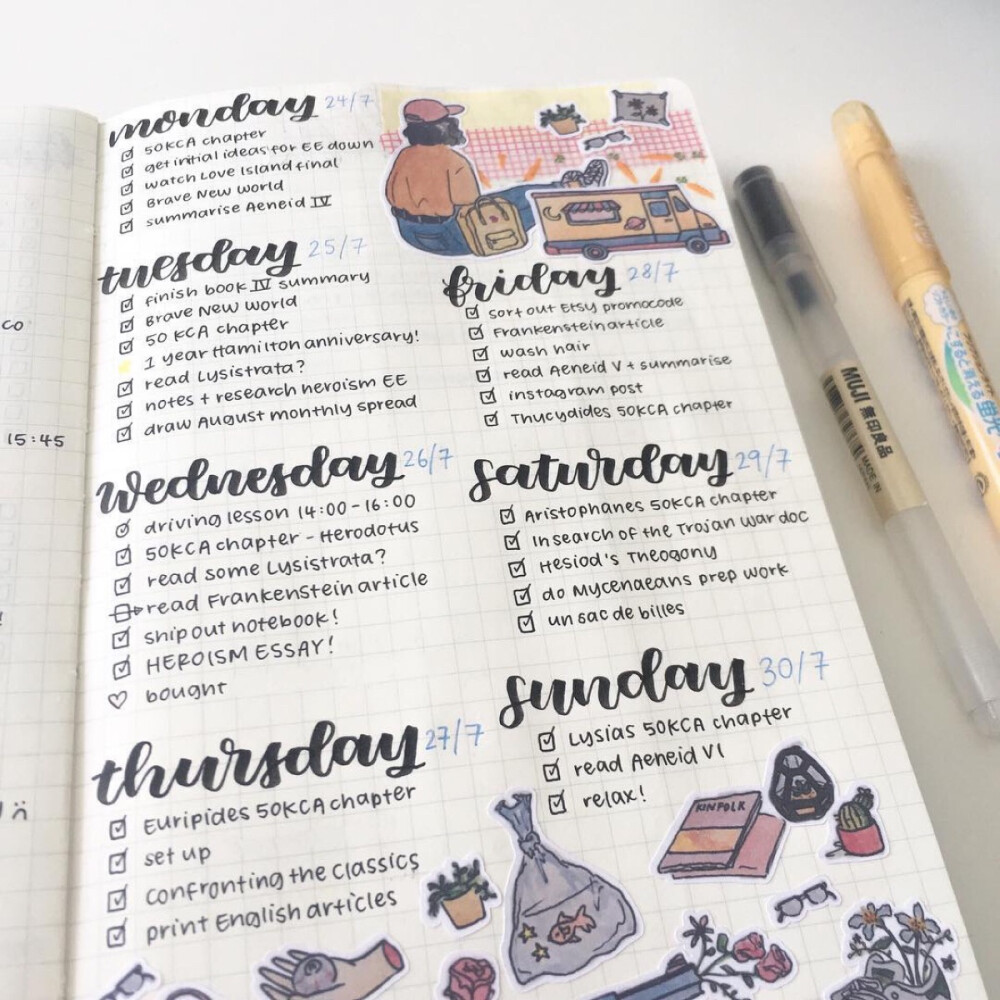 monday 24/7
50KCA chapter
get initial ideas for EE down
watch Love Island final
Brave New World
summarise Aeneid IV
tuesday 25/7
finish book IV summary
Brave New World
50 KCA chapter
1 year Hamilton anniversary!
read Lysistrata?
notes + research heroism EE
draw August monthly spread
wednesday 26/7
driving lesson 14:00-16:00
50KCA chapter - Herodotus
read some Lysistrata?
read Frankenstein article
ship out notebook!
HEROISM ESSAY!
bought
thursday 27/7
Euripides 50KCA chapter
set up
confronting the classics
print English articles
friday 28/7
sort out Etsy promocode
Frankenstein article
wash hair
read Aeneid V + summarise
instagram post
Thucydides 50KCA chapter
saturday 29/7
Aristophanes 50KCA chapter
In search of the Trojan War doc
Hesiod's Theogony
do Mycenaeans prep work
un sac de billes
sunday 30/7
Lysias 50KCA chapter
read Aeneid VI
relax!
KINFOLK
co
15:45
MUJI 無印良品
MADE IN